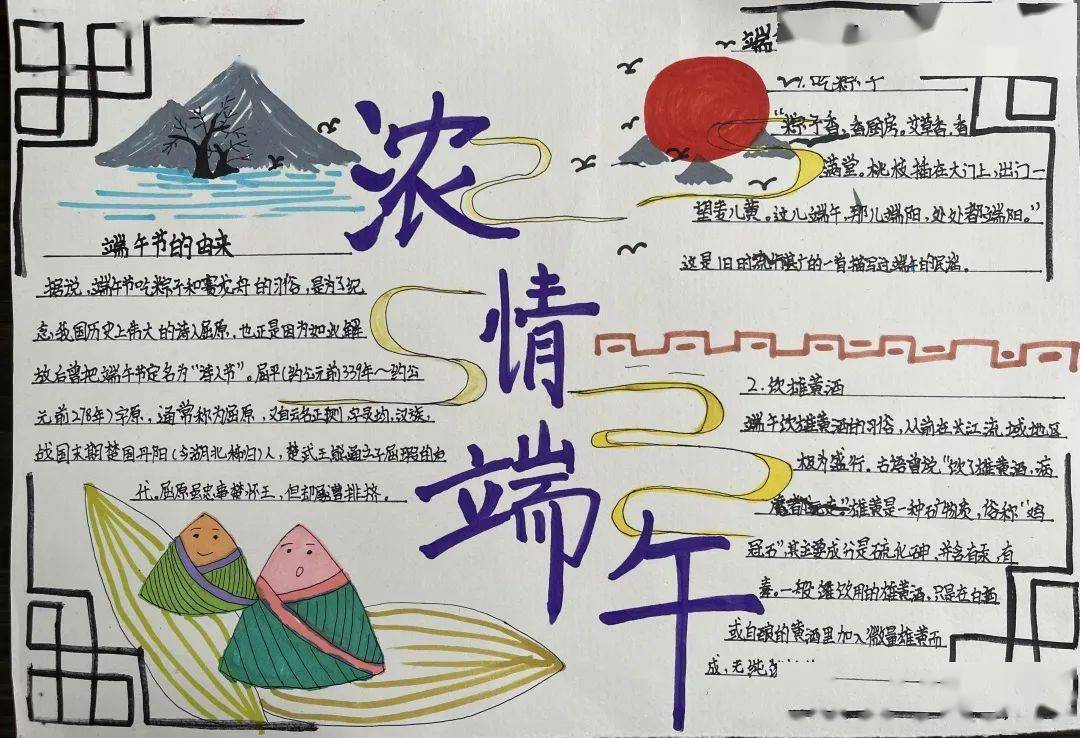 浓情端午
端午节的由来
据说，端午节吃粽子和赛龙舟的习俗，是为了纪
念我国历史上伟大的诗人屈原，也正是因为如此解
放后曾把端午节定名为“诗人节”。屈平(约公元前339年～约公
元前278年)字原，通常称为屈原，又自云名正则，字灵均，汉族，
战国末期楚国丹阳(今湖北秭归)人，楚武王熊通之子屈瑕的后
代。屈原虽忠事楚怀王，但却屡遭排挤。
端
1.吃粽子
“粽子香，香厨房。艾草香，香
满堂。桃枝插在大门上，出门一
望麦儿黄。这儿端午，那儿端阳，处处都端阳。”
这是旧时流行甚广的一首描写过端午的民谣。
2.饮雄黄酒
端午饮雄黄酒的习俗，从前在长江流域地区
极为盛行。古语曾说“饮了雄黄酒，病
雄黄是一种矿物质，俗称“鸡
冠石”其主要成分是硫化砷，并含有汞，有
毒。一般饮用的雄黄酒，只是在白酒
或自酿的黄酒里加入微量雄黄而
成，无纯